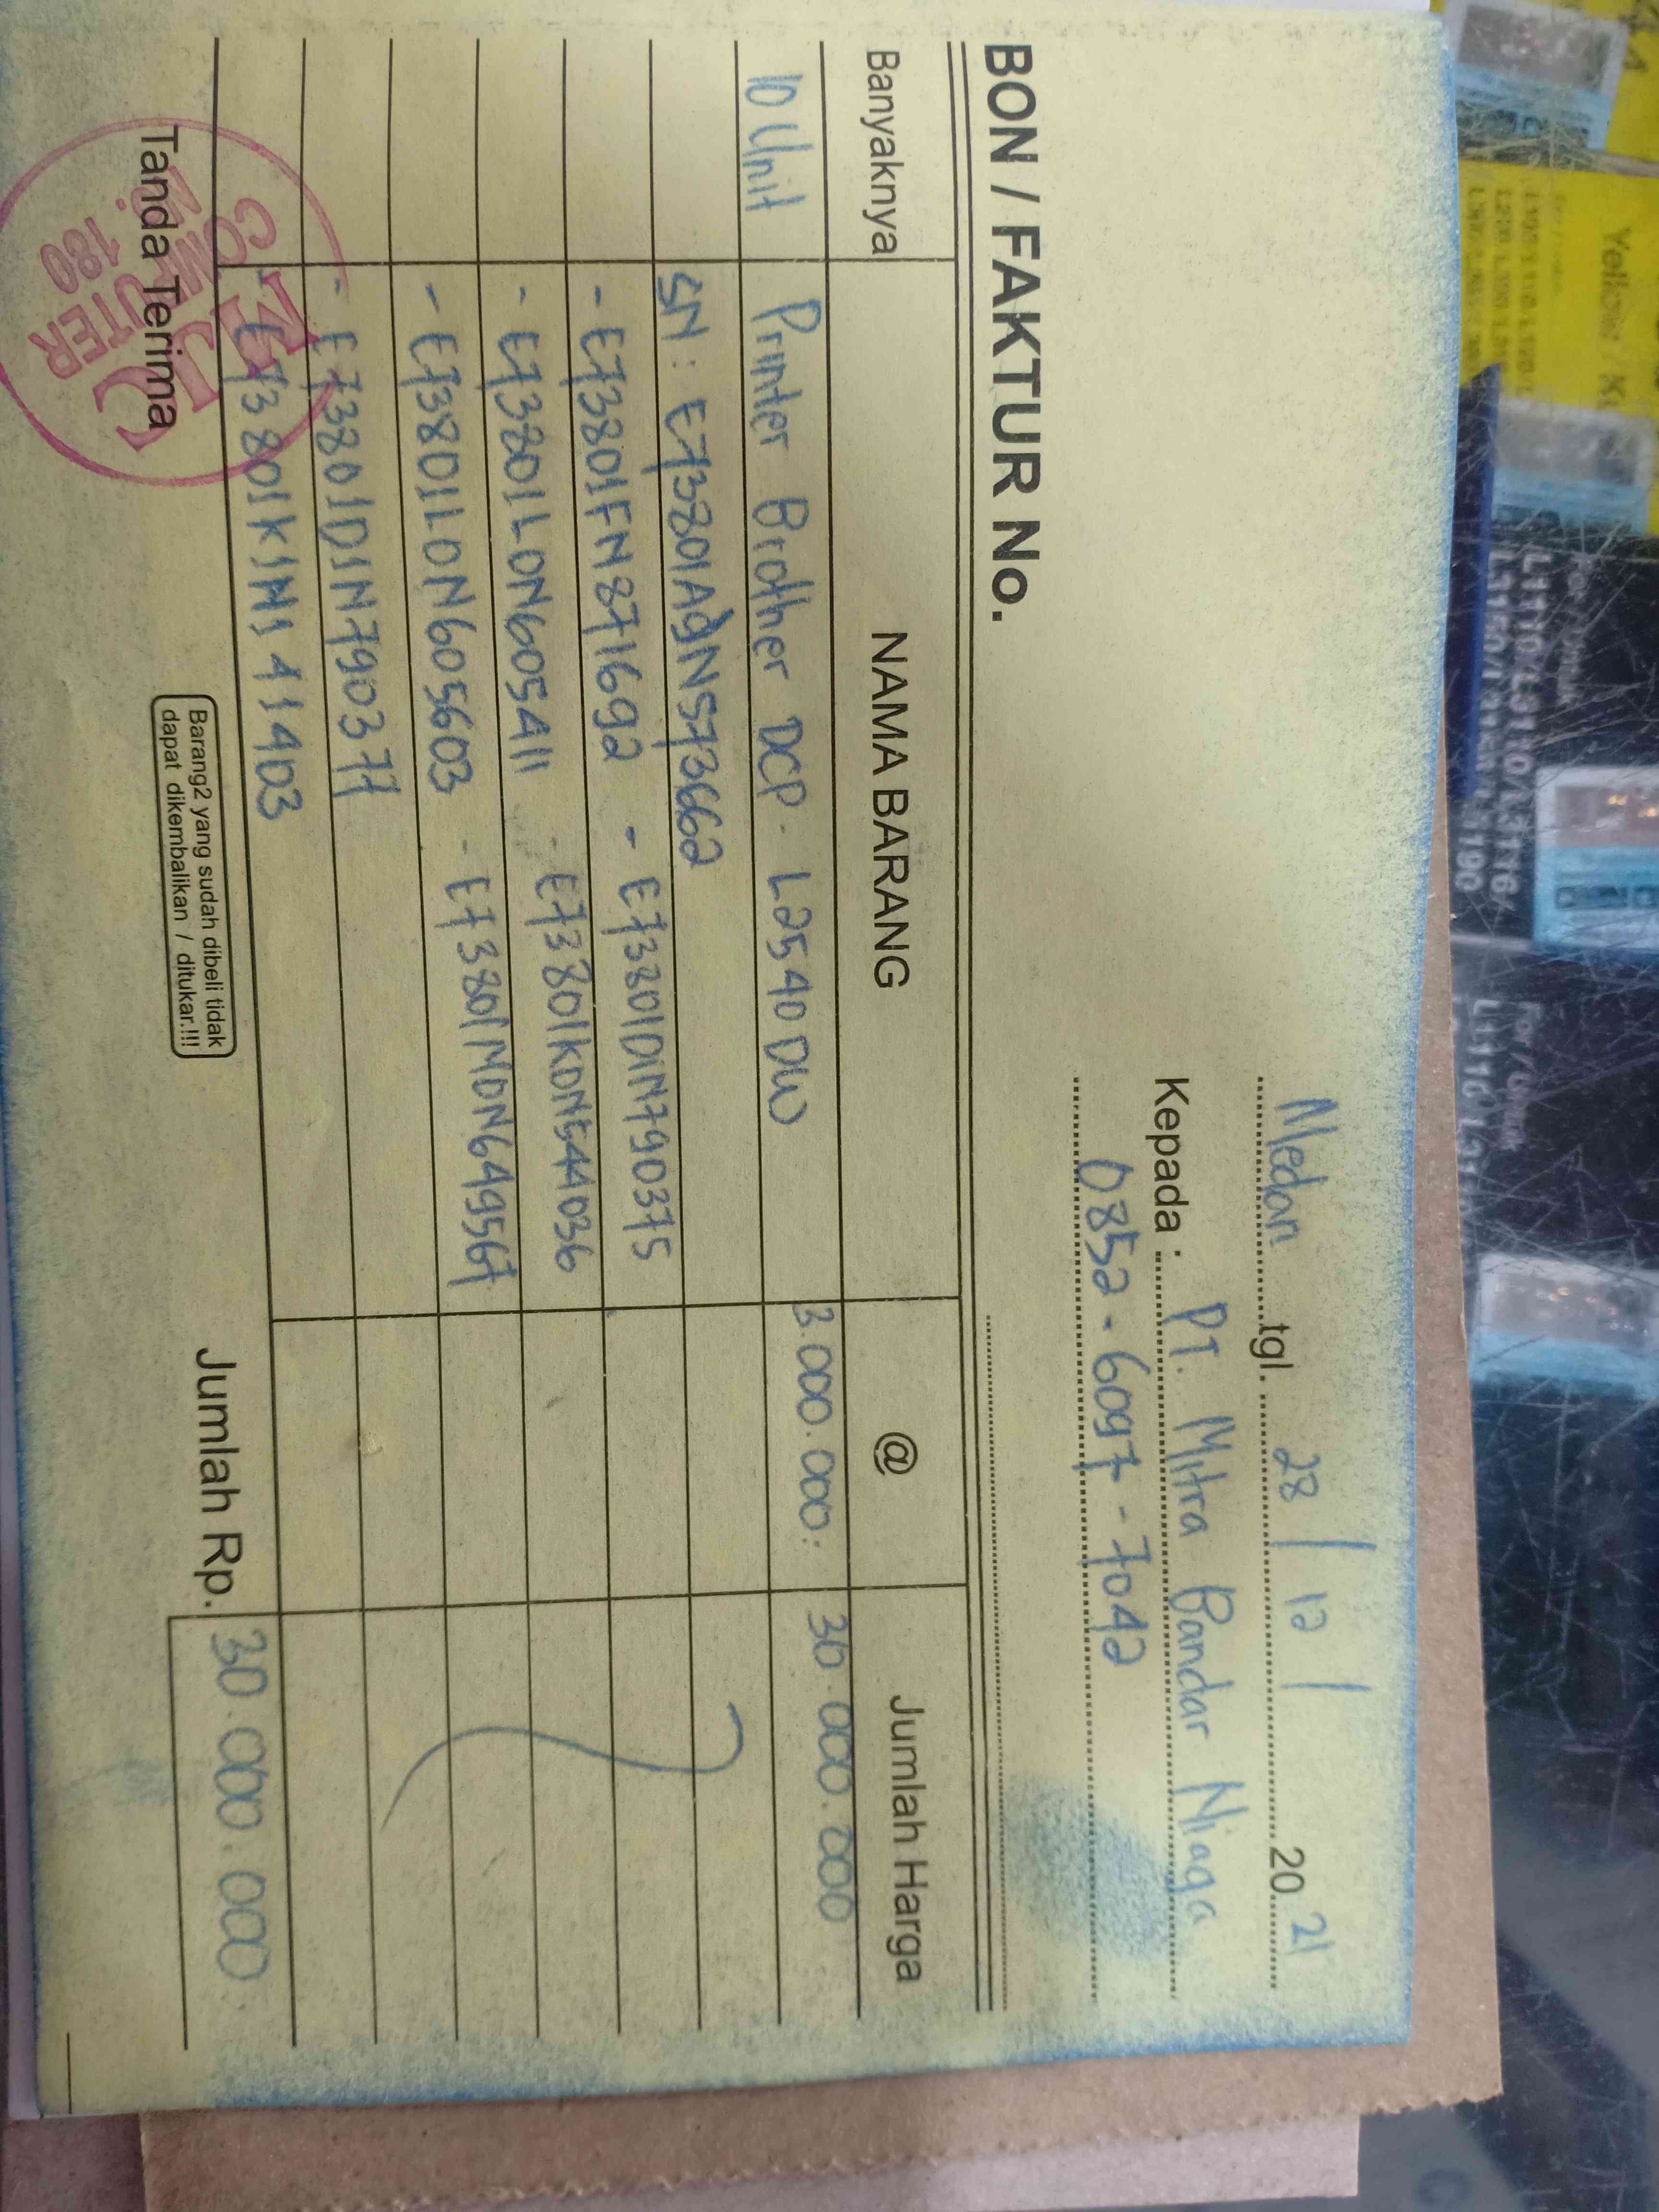 Medan tgl. 28 / 12 / 20 21
Kepada : PT. Mitra Bandar Niaga
0852 - 6097 - 7042
BON / FAKTUR No.
Banyaknya NAMA BARANG @ Jumlah Harga
10 Unit Printer Brother DCP - L2540 DW 3.000.000.- 30.000.000
SN : E73801A9N573662
- E73801FN871692 - E73801D1N790375
- E73801L0N605411 - E73801K0N544036
- E73801L0N605603 - E73801M0N649567
- E73801D1N790377
- E73801K1N141403
Tanda Terima
Barang2 yang sudah dibeli tidak
dapat dikembalikan / ditukar.!!!
Jumlah Rp. 30.000.000
180
Yellow / Ku
L1110/L3110/L3116/
L1110